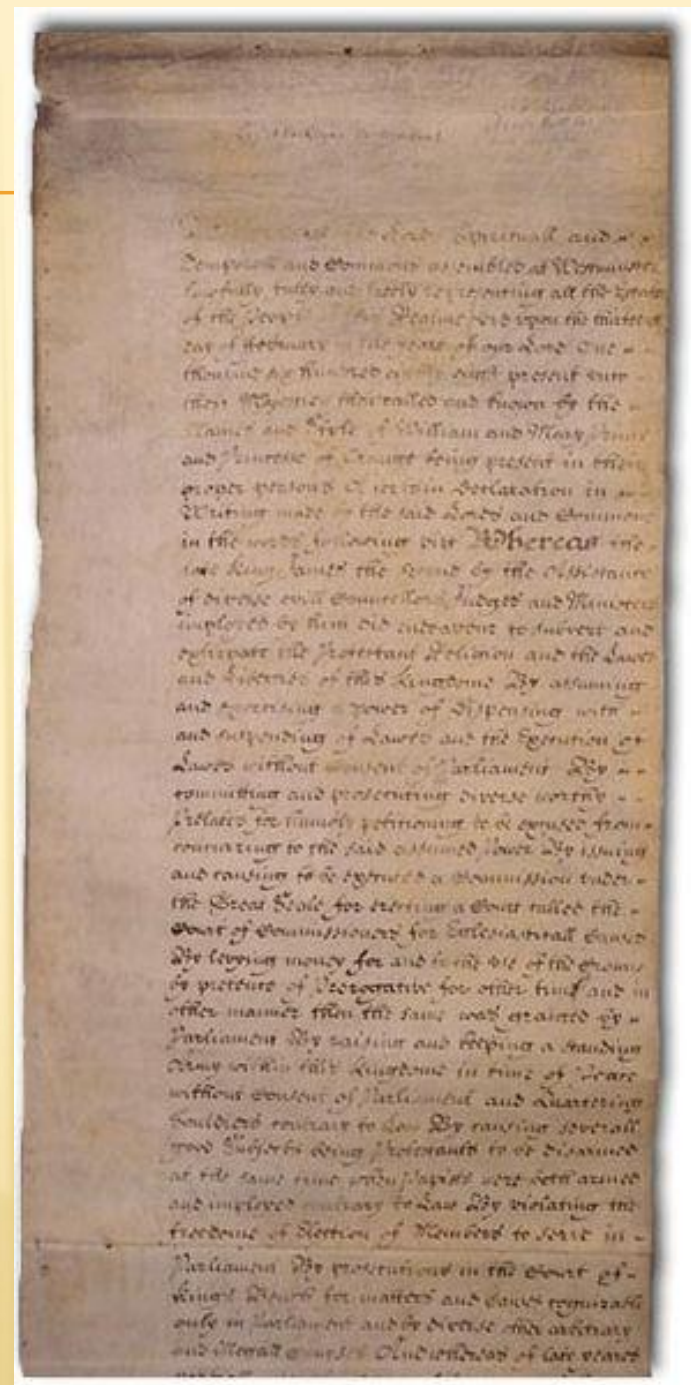 the Lords Spirituall and
Temporall and Commons assembled at Westminster
lawfully fully and freely representing all the Estates
of the People of this Realme did upon the thirteenth
day of February in the yeare of our Lord One
thousand six hundred eighty eight present unto
their Majesties then called and known by the
Names and Stile of William and Mary Prince
and Princesse of Orange being present in their
proper persons A certain Declaration in
Writing made by the said Lords and Commons
in the words following viz Whereas the
late King James the Second by the Assistance
of diverse evill Councellors Judges and Ministers
imployed by him did endeavour to subvert and
extirpate the Protestant Religion and the Lawes
and Liberties of this Kingdome By assuming
and exercising a power of Dispensing with
and suspending of Lawes and the Execution of
Lawes without Consent of Parliament By
committing and prosecuting diverse worthy
Prelates for humbly petitioning to be excused from
concurring to the said assumed Power By issuing
and causing to be executed a Commission under
the Great Seale for erecting a Court called the
Court of Commissioners for Ecclesiasticall Causes
By levying money for and to the use of the Crowne
by pretence of Prerogative for other time and in
other manner then the same was granted by
Parliament By raising and keeping a standing
Army within this Kingdome in time of Peace
without Consent of Parliament and Quartering
Souldiers contrary to Law By causing severall
good Subjects being Protestants to be disarmed
at the same time when Papists were both armed
and imployed contrary to Law By violating the
freedome of Election of Members to serve in
Parliament By prosecutions in the Court of
Kings Bench for matters and Causes cognizable
only in Parliament and by diverse other arbitrary
and illegall courses And whereas of late yeares